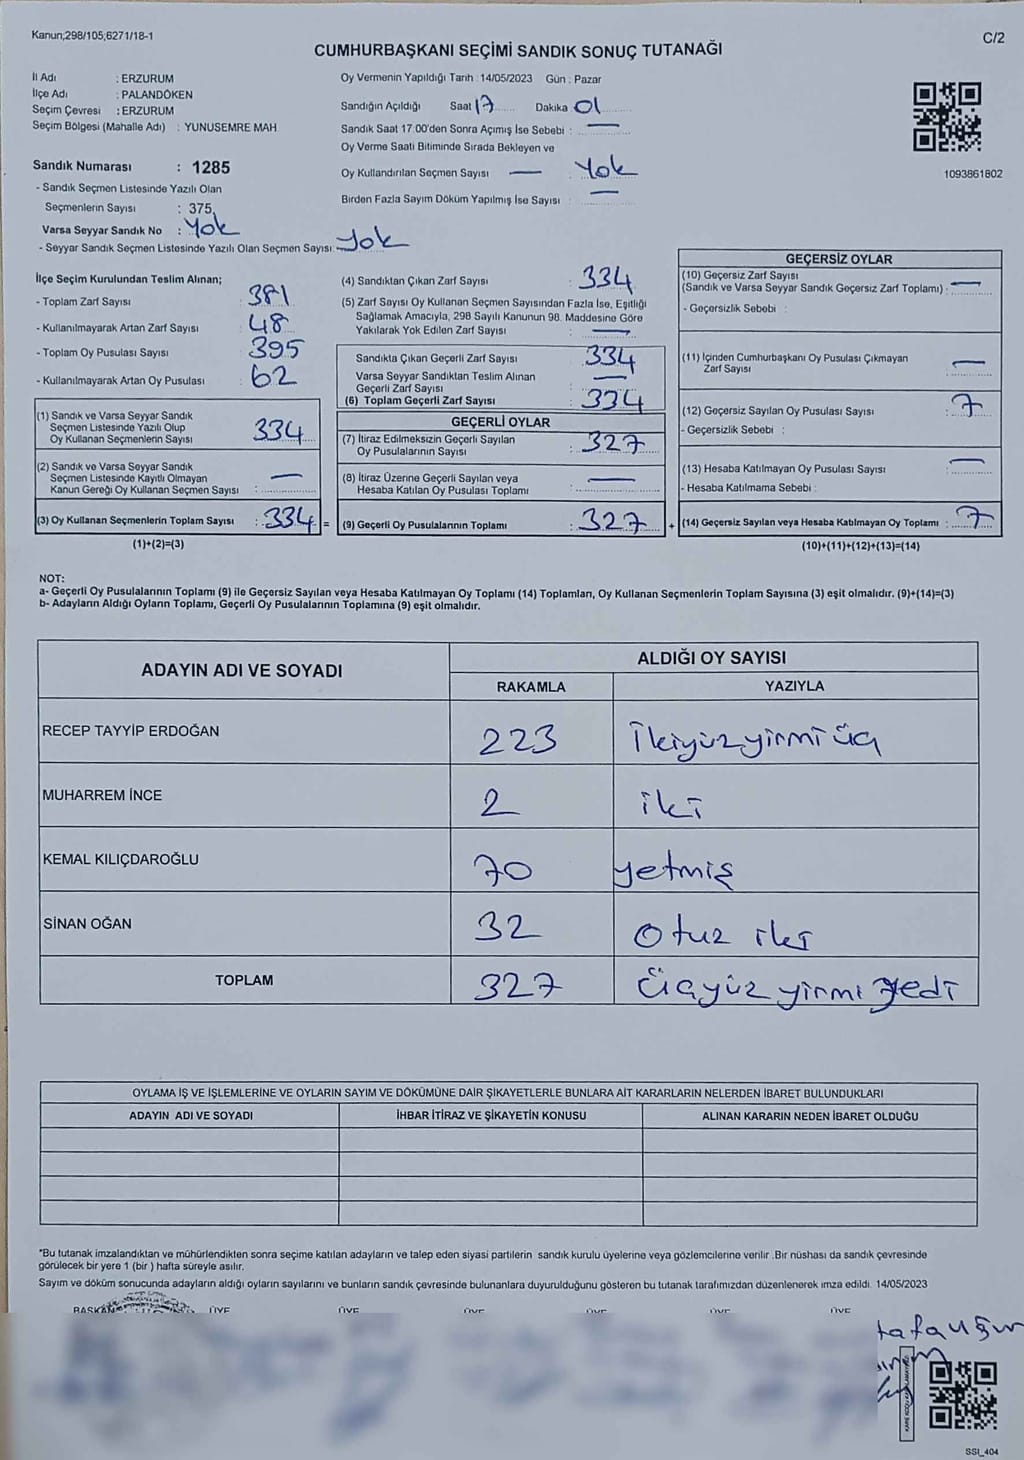 Kanun;298/105,6271/18-1
C/2
CUMHURBAŞKANI SEÇİMİ SANDIK SONUÇ TUTANAĞI
İl Adı : ERZURUM
İlçe Adı : PALANDÖKEN
Seçim Çevresi : ERZURUM
Seçim Bölgesi (Mahalle Adı) : YUNUSEMRE MAH
Sandık Numarası : 1285
- Sandık Seçmen Listesinde Yazılı Olan
Seçmenlerin Sayısı : 375
Varsa Seyyar Sandık No : Yok
- Seyyar Sandık Seçmen Listesinde Yazılı Olan Seçmen Sayısı: Yok
Oy Vermenin Yapıldığı Tarih : 14/05/2023 Gün : Pazar
Sandığın Açıldığı Saat 17 Dakika 01
Sandık Saat 17.00'den Sonra Açımış İse Sebebi : —
Oy Verme Saati Bitiminde Sırada Bekleyen ve
Oy Kullandırılan Seçmen Sayısı — Yok
Birden Fazla Sayım Döküm Yapılmış İse Sayısı : —
1093861802
İlçe Seçim Kurulundan Teslim Alınan;
- Toplam Zarf Sayısı : 381
- Kullanılmayarak Artan Zarf Sayısı : 48
- Toplam Oy Pusulası Sayısı : 395
- Kullanılmayarak Artan Oy Pusulası : 62
(1) Sandık ve Varsa Seyyar Sandık
Seçmen Listesinde Yazılı Olup
Oy Kullanan Seçmenlerin Sayısı : 334
(2) Sandık ve Varsa Seyyar Sandık
Seçmen Listesinde Kayıtlı Olmayan
Kanun Gereği Oy Kullanan Seçmen Sayısı : —
(3) Oy Kullanan Seçmenlerin Toplam Sayısı : 334 =
(1)+(2)=(3)
(4) Sandıktan Çıkan Zarf Sayısı : 334
(5) Zarf Sayısı Oy Kullanan Seçmen Sayısından Fazla İse, Eşitliği
Sağlamak Amacıyla, 298 Sayılı Kanunun 98. Maddesine Göre
Yakılarak Yok Edilen Zarf Sayısı : —
Sandıkta Çıkan Geçerli Zarf Sayısı : 334
Varsa Seyyar Sandıktan Teslim Alınan
Geçerli Zarf Sayısı : —
(6) Toplam Geçerli Zarf Sayısı : 334
GEÇERLİ OYLAR
(7) İtiraz Edilmeksizin Geçerli Sayılan
Oy Pusulalarının Sayısı : 327
(8) İtiraz Üzerine Geçerli Sayılan veya
Hesaba Katılan Oy Pusulası Toplamı : —
(9) Geçerli Oy Pusulalarının Toplamı : 327 +
GEÇERSİZ OYLAR
(10) Geçersiz Zarf Sayısı
(Sandık ve Varsa Seyyar Sandık Geçersiz Zarf Toplamı) : —
- Geçersizlik Sebebi :
(11) İçinden Cumhurbaşkanı Oy Pusulası Çıkmayan
Zarf Sayısı : —
(12) Geçersiz Sayılan Oy Pusulası Sayısı : 7
- Geçersizlik Sebebi :
(13) Hesaba Katılmayan Oy Pusulası Sayısı : —
- Hesaba Katılmama Sebebi :
(14) Geçersiz Sayılan veya Hesaba Katılmayan Oy Toplamı : 7
(10)+(11)+(12)+(13)=(14)
NOT:
a- Geçerli Oy Pusulalarının Toplamı (9) ile Geçersiz Sayılan veya Hesaba Katılmayan Oy Toplamı (14) Toplamları, Oy Kullanan Seçmenlerin Toplam Sayısına (3) eşit olmalıdır. (9)+(14)=(3)
b- Adayların Aldığı Oyların Toplamı, Geçerli Oy Pusulalarının Toplamına (9) eşit olmalıdır.
ADAYIN ADI VE SOYADI
ALDIĞI OY SAYISI
RAKAMLA YAZIYLA
RECEP TAYYİP ERDOĞAN 223 İkiyüzyirmi üç
MUHARREM İNCE 2 iki
KEMAL KILIÇDAROĞLU 70 yetmiş
SİNAN OĞAN 32 Otuz iki
TOPLAM 327 Üçyüz yirmi yedi
OYLAMA İŞ VE İŞLEMLERİNE VE OYLARIN SAYIM VE DÖKÜMÜNE DAİR ŞİKAYETLERLE BUNLARA AİT KARARLARIN NELERDEN İBARET BULUNDUKLARI
ADAYIN ADI VE SOYADI İHBAR İTİRAZ VE ŞİKAYETİN KONUSU ALINAN KARARIN NEDEN İBARET OLDUĞU
*Bu tutanak imzalandıktan ve mühürlendikten sonra seçime katılan adayların ve talep eden siyasi partilerin sandık kurulu üyelerine veya gözlemcilerine verilir .Bir nüshası da sandık çevresinde
görülecek bir yere 1 (bir ) hafta süreyle asılır.
Sayım ve döküm sonucunda adayların aldığı oyların sayılarını ve bunların sandık çevresinde bulunanlara duyurulduğunu gösteren bu tutanak tarafımızdan düzenlenerek imza edildi. 14/05/2023
BAŞKAN ÜYE ÜYE ÜYE ÜYE ÜYE ÜYE
SSI_404